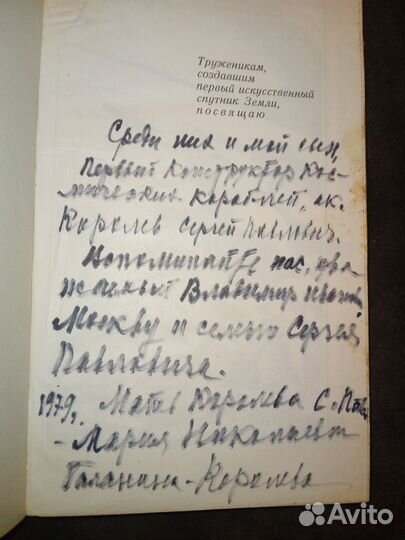 Труженикам,
создавшим
первый искусственный
спутник Земли,
посвящаю
Среди них и мой сын,
первый Конструктор Кос-
мических кораблей, ак.
Королев Сергей Павлович.
Вспоминайте нас, ува
жаемый Владимир
Москву и семью Сергея
Павловича.
1979, Мать Королева С. Пав.
- Мария Николаевн
Баланина-Королева
Avito